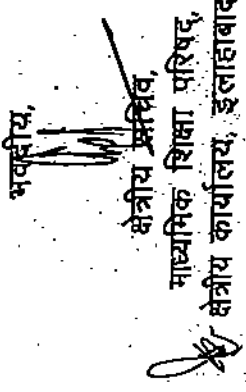 भवदीय,
क्षेत्रीय सचिव,
माध्यमिक शिक्षा परिषद्,
क्षेत्रीय कार्यालय, इलाहाबाद